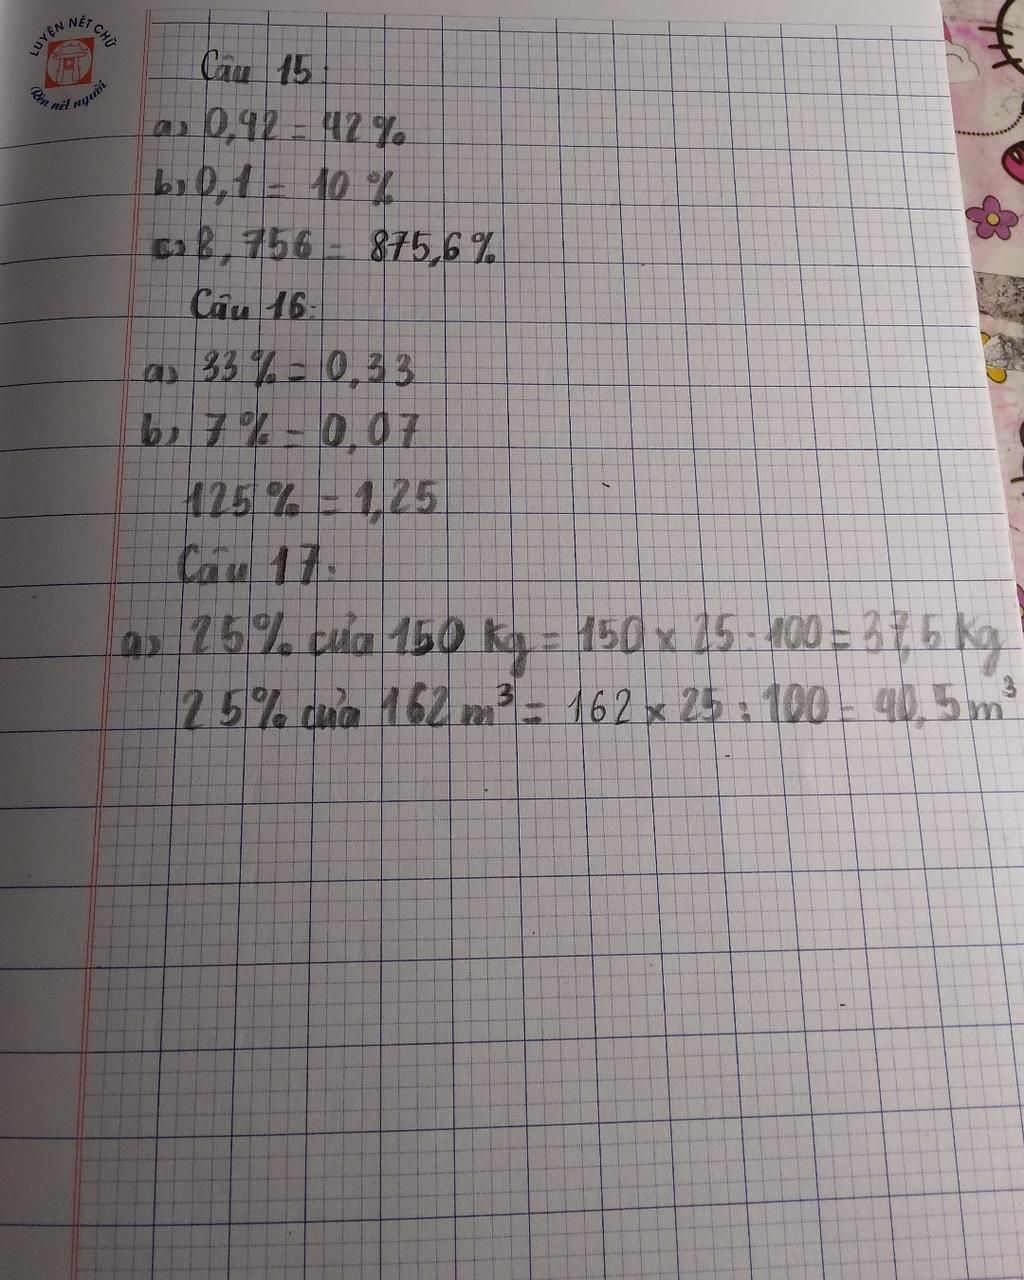 LUYỆN NÉT CHỮ
Rèn nết người
Câu 15:
a) 0,42 = 42%
b) 0,1 = 10 %
c) 8,756 = 875,6%
Câu 16:
a) 33% = 0,33
b) 7% = 0,07
125% = 1,25
Câu 17:
a) 25% của 150 Kg = 150 x 25 : 100 = 37,5 Kg
25% của 162 m³ = 162 x 25 : 100 = 40,5 m³